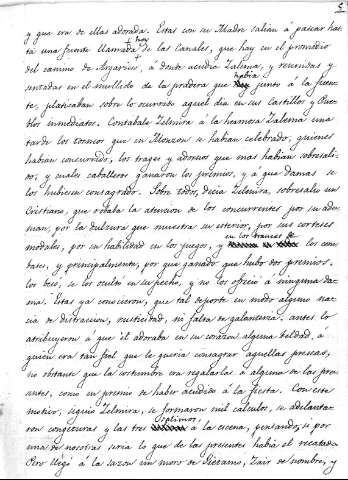 5
y que era de ellas adorada. Estas con su Madre salian á pasear has-
ta una fuente llamada hoy de las Canales, que hay en el promedio
del camino de Argavieso, á donde acudia Zalema, y reunidas y
sentadas en el mullido de la pradera que había junto á la fuen-
te, platicaban sobre lo ocurrido aquel dia en sus Castillos y Pue-
blos inmediatos. Contabale Zelmira á la hermosa Zalema una
tarde los torneos que en Monzon se habian celebrado, quienes
habian concurrido, los trages y adornos que mas habian sobresali-
do, y cuales caballeros ganaron los premios, y á que damas se
los hubiesen consagrado. Sobre todos, decia Zelmira, sobresalia un
Cristiano, que robaba la atencion de los concurrentes por su ade-
man, por la dulzura que muestra su interior, por sus corteses
modales, por su habilidad en los juegos, y en los trances de los com-
bates, y principalmente, por que ganado que hubo dos premios,
los besó, se los ocultó en su pecho, y no los ofreció á ninguna da-
ma. Estas ya conocieron, que tal deporte en modo alguno na-
cia de distraccion, rusticidad, ni falta de galanteria, antes lo
atribuyeron á que él adoraba en su corazon alguna beldad, á
quien era tan fiel que le queria consagrar aquellas presas,
no obstante que la costumbre era regalarlas á alguna de las pre-
sentes, como en premio de haber acudido á la fiesta. Con este
motivo, siguió Zelmira, se formaron mil calculos, se adelanta-
ron congeturas y las tres salimos á la escena, pensando, si por
una de nosotras seria lo que de las presentes habia el recatado
Pero llegó á la sazon un moro de Piérano, Zair de nombre, y